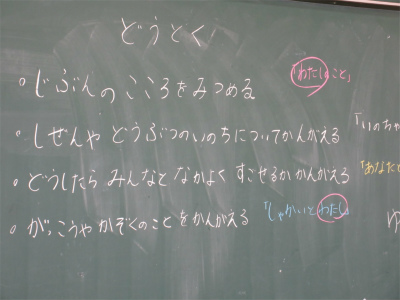 どうとく
「わたしのこと」
・じぶんの こころを みつめる
・しぜんや どうぶつのいのちについてかんがえる 「いのちや
・どうしたら みんなと なかよく すごせるか かんがえる 「あなたと
・がっこうや かぞくのこと をかんがえる 「しゃかいとわたし」 ゆ